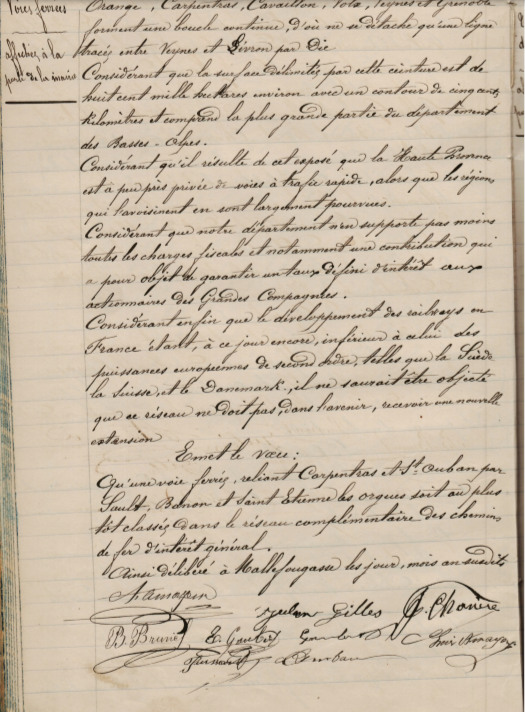 Voies ferrées
affichée à la
porte de la mairie
Orange, Carpentras, Cavaillon, Volx, Veynes et Grenoble
forment une boucle continue, d'où ne se détache qu'une ligne
tracée entre Veynes et Livron par Die
Considérant que la surface délimitée par cette ceinture est de
huit cent mille hectares environ avec un contour de cinq cents
kilomètres et comprend la plus grande partie du département
des Basses-Alpes.
Considérant qu'il résulte de cet exposé que la Haute Provence
est à peu près privée de voies à trafic rapide, alors que les régions
qui l'avoisinent en sont largement pourvues.
Considérant que notre département n'en supporte pas moins
toutes les charges fiscales et notamment une contribution qui
a pour objet de garantir un taux défini d'intérêt aux
actionnaires des Grandes Compagnies.
Considérant enfin que le développement des railways en
France étant, à ce jour encore, inférieur à celui des
puissances européennes de second ordre, telles que la Suède
la Suisse, et le Danemark, il ne saurait être objecté
que ce réseau ne doit pas, dans l'avenir, recevoir une nouvelle
extension
Emet le vœu:
Qu'une voie ferrée, reliant Carpentras et St Auban par
Sault, Banon et Saint Etienne les orgues soit au plus
tôt classée dans le réseau complémentaire des chemins
de fer d'intérêt général.
Ainsi délibéré à Mallefougasse les jour, mois an susdits
Gilles
B. Brunel